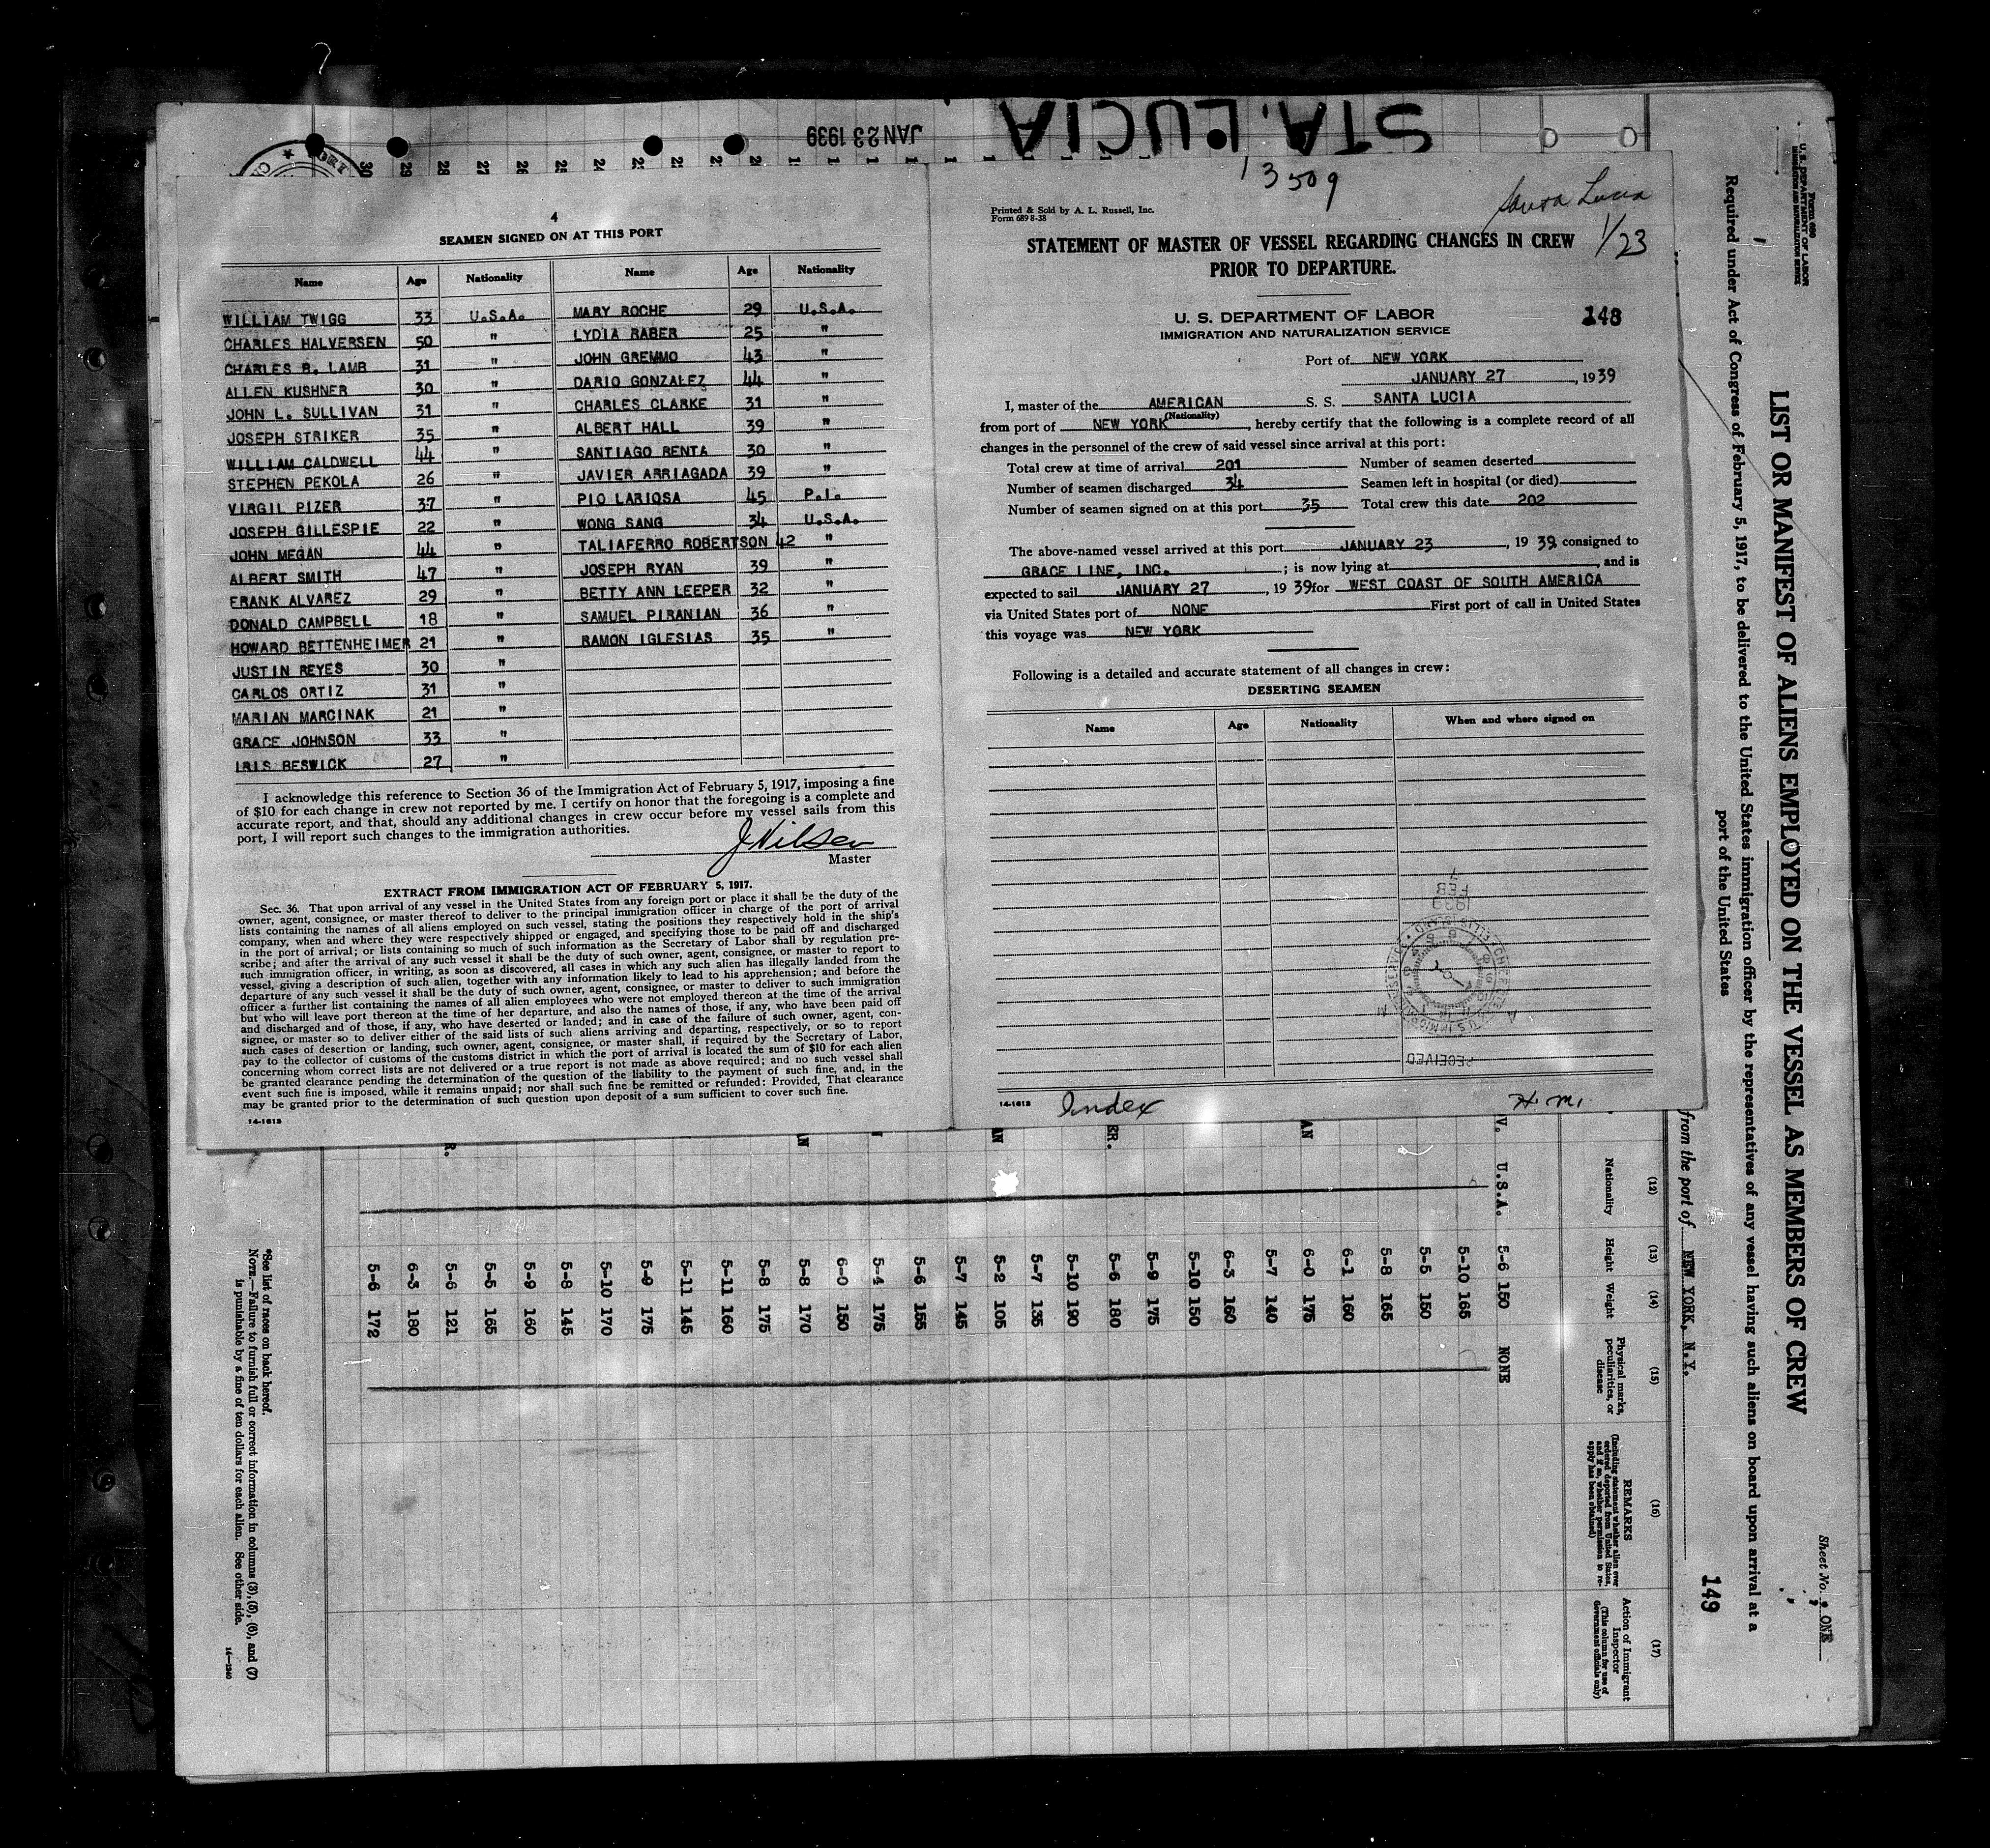 STA. LUCIA
JAN 23 1939
4
SEAMEN SIGNED ON AT THIS PORT
Name Age Nationality Name Age Nationality
WILLIAM TWIGG 33 U.S.A. MARY ROCHE 29 U.S.A.
CHARLES HALVERSEN 50 " LYDIA RABER 25 "
CHARLES B. LAMB 31 " JOHN GREMMO 43 "
ALLEN KUSHNER 30 " DARIO GONZALEZ 44 "
JOHN L. SULLIVAN 31 " CHARLES CLARKE 31 "
JOSEPH STRIKER 35 " ALBERT HALL 39 "
WILLIAM CALDWELL 44 " SANTIAGO RENTA 30 "
STEPHEN PEKOLA 26 " JAVIER ARRIAGADA 39 "
VIRGIL PIZER 37 " PIO LARIOSA 45 P.I.
JOSEPH GILLESPIE 22 " WONG SANG 34 U.S.A.
JOHN MEGAN 44 " TALIAFERRO ROBERTSON 42 "
ALBERT SMITH 47 " JOSEPH RYAN 39 "
FRANK ALVAREZ 29 " BETTY ANN LEEPER 32 "
DONALD CAMPBELL 18 " SAMUEL PIRANIAN 36 "
HOWARD BETTENHEIMER 21 " RAMON IGLESIAS 35 "
JUSTIN REYES 30 "
CARLOS ORTIZ 31 "
MARIAN MARCINAK 21 "
GRACE JOHNSON 33 "
IRIS BESWICK 27 "
I acknowledge this reference to Section 36 of the Immigration Act of February 5, 1917, imposing a fine
of $10 for each change in crew not reported by me. I certify on honor that the foregoing is a complete and
accurate report, and that, should any additional changes in crew occur before my vessel sails from this
port, I will report such changes to the immigration authorities.
J Nilsen
Master
EXTRACT FROM IMMIGRATION ACT OF FEBRUARY 5, 1917.
Sec. 36. That upon arrival of any vessel in the United States from any foreign port or place it shall be the duty of the
owner, agent, consignee, or master thereof to deliver to the principal immigration officer in charge of the port of arrival
lists containing the names of all aliens employed on such vessel, stating the positions they respectively hold in the ship's
company, when and where they were respectively shipped or engaged, and specifying those to be paid off and discharged
in the port of arrival; or lists containing so much of such information as the Secretary of Labor shall by regulation pre-
scribe; and after the arrival of any such vessel it shall be the duty of such owner, agent, consignee, or master to report to
such immigration officer, in writing, as soon as discovered, all cases in which any such alien has illegally landed from the
vessel, giving a description of such alien, together with any information likely to lead to his apprehension; and before the
departure of any such vessel it shall be the duty of such owner, agent, consignee, or master to deliver to such immigration
officer a further list containing the names of all alien employees who were not employed thereon at the time of the arrival
but who will leave port thereon at the time of her departure, and also the names of those, if any, who have been paid off
and discharged and of those, if any, who have deserted or landed; and in case of the failure of such owner, agent, con-
signee, or master so to deliver either of the said lists of such aliens arriving and departing, respectively, or so to report
such cases of desertion or landing, such owner, agent, consignee, or master shall, if required by the Secretary of Labor,
pay to the collector of customs of the customs district in which the port of arrival is located the sum of $10 for each alien
concerning whom correct lists are not delivered or a true report is not made as above required; and no such vessel shall
be granted clearance pending the determination of the question of the liability to the payment of such fine, and, in the
event such fine is imposed, while it remains unpaid; nor shall such fine be remitted or refunded: Provided, That clearance
may be granted prior to the determination of such question upon deposit of a sum sufficient to cover such fine.
14-1613
13509
Santa Lucia
1/23
Printed & Sold by A. L. Russell, Inc.
Form 689 8-38
STATEMENT OF MASTER OF VESSEL REGARDING CHANGES IN CREW
PRIOR TO DEPARTURE.
U. S. DEPARTMENT OF LABOR
IMMIGRATION AND NATURALIZATION SERVICE
148
Port of NEW YORK
JANUARY 27, 1939
I, master of the AMERICAN S. S. SANTA LUCIA
(Nationality)
from port of NEW YORK, hereby certify that the following is a complete record of all
changes in the personnel of the crew of said vessel since arrival at this port:
Total crew at time of arrival 201 Number of seamen deserted
Number of seamen discharged 34 Seamen left in hospital (or died)
Number of seamen signed on at this port 35 Total crew this date 202
The above-named vessel arrived at this port JANUARY 23, 19 39 consigned to
GRACE LINE, INC.; is now lying at , and is
expected to sail JANUARY 27, 19 39 for WEST COAST OF SOUTH AMERICA
via United States port of NONE First port of call in United States
this voyage was NEW YORK
Following is a detailed and accurate statement of all changes in crew:
DESERTING SEAMEN
Name Age Nationality When and where signed on
1939
FEB
RECEIVED
14-1613
Index
H. M.
Form 689
U. S. DEPARTMENT OF LABOR
LIST OR MANIFEST OF ALIENS EMPLOYED ON THE VESSEL AS MEMBERS OF CREW
Required under Act of Congress of February 5, 1917, to be delivered to the United States immigration officer by the representatives of any vessel having such aliens on board upon arrival at a
port of the United States
Sheet No. ONE
from the port of NEW YORK, N.Y.
149
(12) (13) (14) (15) (16) (17)
Nationality
Height
Weight
Physical marks, peculiarities, or disease
REMARKS
(Including statement whether alien ever ordered deported from United States, and if so, whether permission to re-apply has been obtained)
Action of Immigrant Inspector
(This column for use of Government officials only)
U.S.A. 5-6 150 NONE
5-10 165
5-5 150
5-8 165
6-1 160
6-0 175
5-7 140
6-3 160
5-10 150
5-9 175
5-6 180
5-10 190
5-7 135
5-2 105
5-7 145
5-6 155
5-4 175
6-0 150
5-8 170
5-8 175
5-11 160
5-11 145
5-9 175
5-10 170
5-8 145
5-9 160
5-5 165
5-6 121
6-3 180
5-6 172
*See list of races on back hereof.
NOTE.—Failure to furnish full or correct information in columns (3), (5), (6), and (7)
is punishable by a fine of ten dollars for each alien. See other side.
14-1240